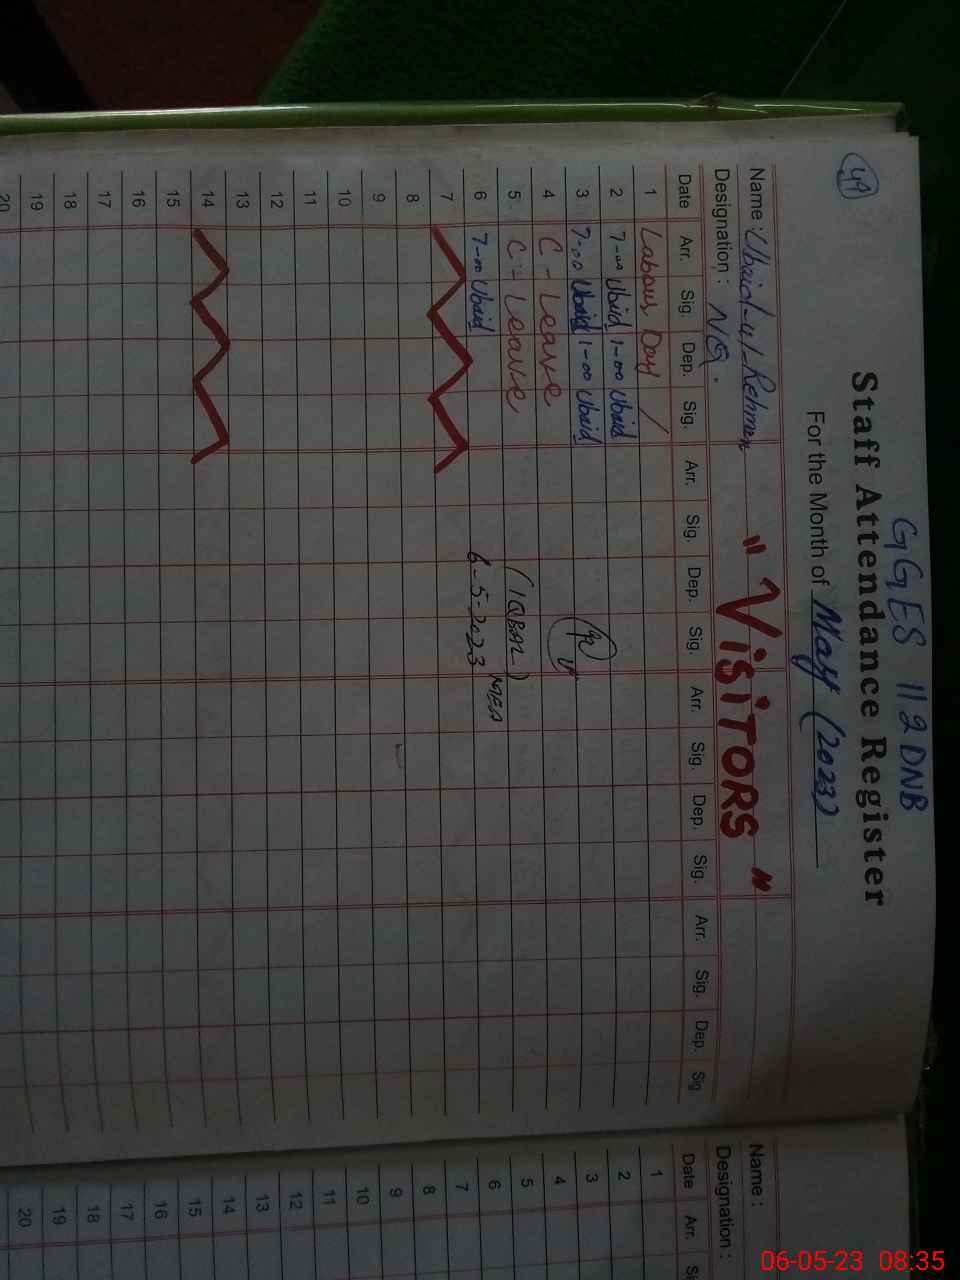 49
GGES 112 DNB
Staff Attendance Register
For the Month of May (2023)
Name : Ubaid-ul-Rehman "VISITORS"
Designation : NQ.
Date Arr. Sig. Dep. Sig. Arr. Sig. Dep. Sig. Arr. Sig. Dep. Sig. Arr. Sig. Dep. Sig
1 Labour Day /
2 7-00 Ubaid 1-00 Ubaid
3 7-00 Ubaid 1-00 Ubaid
4 C - Leave
5 C - Leave (IQBAL) MEA
6 7-00 Ubaid 6-5-2023
7
8
9
10
11
12
13
14
15
16
17
18
19
20
Name :
Designation :
Date Arr.
1
2
3
4
5
6
7
8
9
10
11
12
13
14
15
16
17
18
19
20
06-05-23 08:35